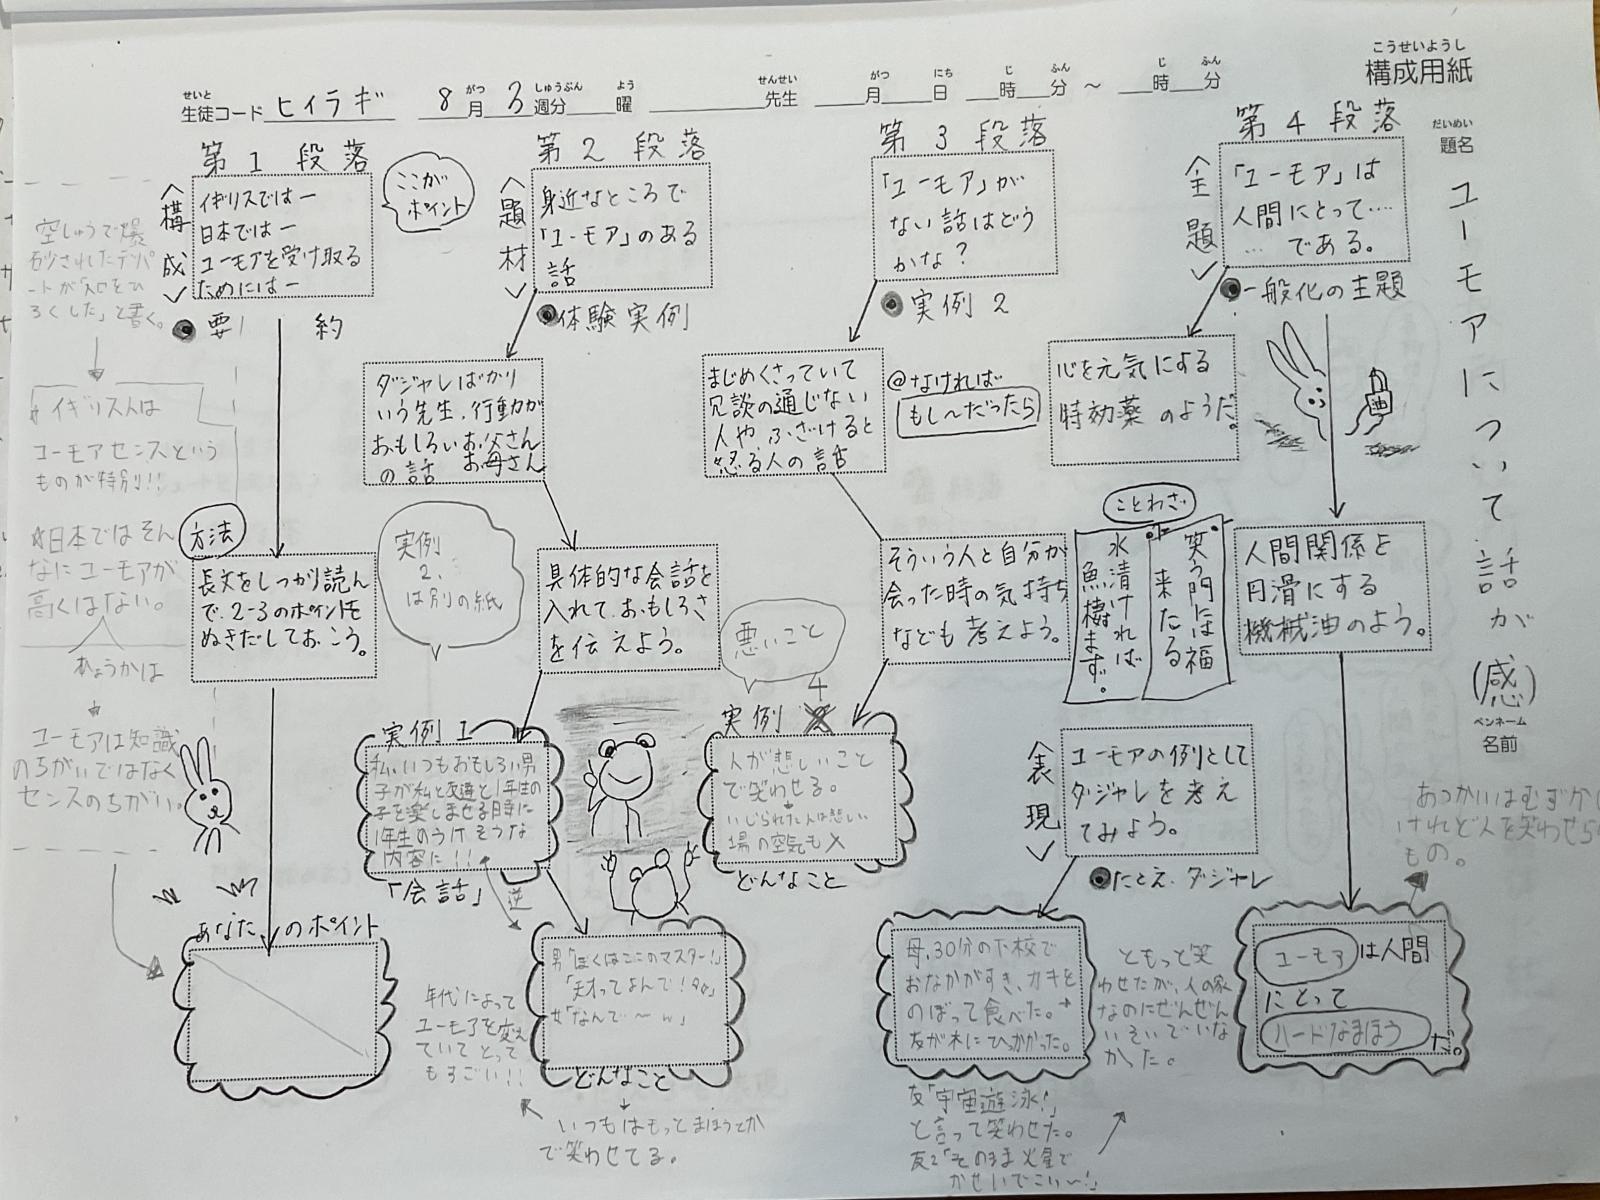 こうせいようし
構成用紙
せいと がつ しゅうぶん よう せんせい がつ にち じ ふん じ ふん
生徒コード ヒイラギ 8月 3週分 曜 先生 月 日 時 分 ～ 時 分
だいめい
題名
ユーモアについて話が(感)
ペンネーム
名前
第1段落
〈構成〉
イギリスではー
日本ではー
ユーモアを受け取る
ためにはー
ここが
ポイント
要約
方法
長文をしっかり読ん
で、2-3のポイントを
ぬきだしておこう。
あなたのポイント
空しゅうで爆
砂されたデパ
ートが「知をひ
ろくした」と書く。
イギリス人は
ユーモアセンスという
ものが特別!!
☆日本ではそん
なにユーモアが
高くはない。
ひょうかは
ユーモアは知識
のちがいではなく
センスのちがい。
第2段落
〈題材〉
身近なところで
「ユーモア」のある
話
体験実例
ダジャレばかり
いう先生、行動が
おもしろいお父さん
お母さん
の話
実例
2、
は別の紙
具体的な会話を
入れて、おもしろさ
を伝えよう。
実例1
私、いつもおもしろい男
子が私と友達と1年生の
子を楽しませる時に
1年生のうけそうな
内容に!!
「会話」
逆
男「ぼくはここのマスター!」
「天才ってよんで!」
女「なんで〜w」
どんなこと
いつもはもっとまほうとか
で笑わせてる。
年代によって
ユーモアを変え
ていてとって
もすごい!!
第3段落
「ユーモア」が
ない話はどう
かな?
実例2
まじめくさっていて
冗談の通じない
人や、ふざけると
怒る人の話
@なければ
もし〜だったら
そういう人と自分が
会った時の気持ち
なども考えよう。
悪いこと
実例 4
人が悲しいこと
で笑わせる。
いじられた人は悲しい
場の空気も×
どんなこと
第4段落
〈主題〉
「ユーモア」は
人間にとって‥‥
‥‥である。
一般化の主題
心を元気にする
特効薬のようだ。
油
ことわざ
笑う門には福
来たる
水清ければ
魚棲まず。
人間関係を
円滑にする
機械油のよう。
〈表現〉
ユーモアの例として
ダジャレを考え
てみよう。
たとえ、ダジャレ
母、30分の下校で
おなかがすき、カキを
のぼって食べた。
友が木にひっかかった。
友「宇宙遊泳!」
と言って笑わせた。
友2「そのまま火星で
かせいでこい〜!」
ともっと笑
わせたが、人の家
なのにぜんぜん
いそいでいな
かった。
ユーモアは人間
にとって
ハードなまほうだ。
あつかいはむずかし
けれど人を笑わせら
もの。